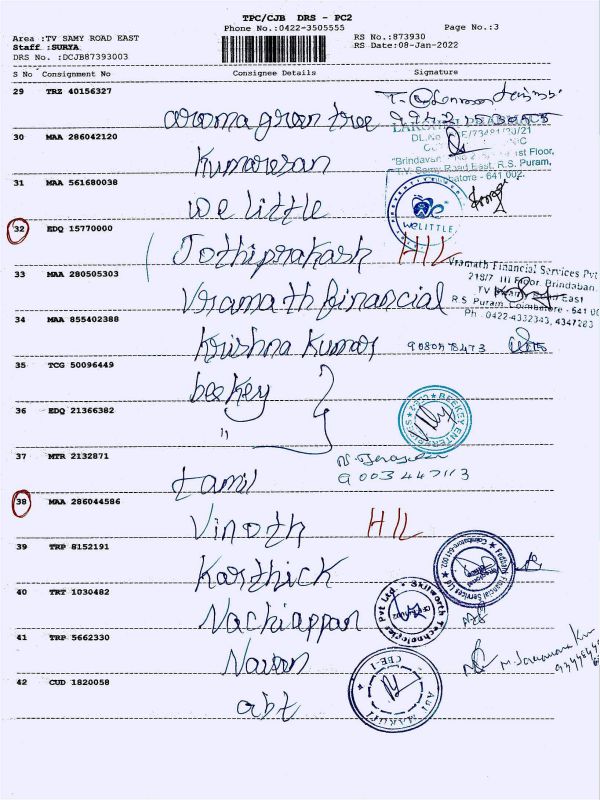 TPC/CJB DRS - PC2
Phone No.:0422-3505555 Page No.:3
Area :TV SAMY ROAD EAST RS No.:873930
Staff :SURYA RS Date:08-Jan-2022
DRS No. :DCJB87393003
S No Consignment No Consignee Details Signature
29 TRZ 40156327
aroma green tree
30 MAA 286042120
Kumaresan
"Brindavan" st Floor,
T.V. Samy Road East, R.S. Puram,
Coimbatore - 641 002.
31 MAA 561680038
we little
WELITTLE
32 EDQ 15770000
Jothiprakash HIL
33 MAA 280505303
Vramath financial
Vramath Financial Services Pvt
218/7 III Floor, Brindaban
TV Samy Road East
R.S. Puram, Coimbatore - 641 00
Ph : 0422-4332343, 4347283
34 MAA 855402388
Krishna Kumar
35 TCG 50096449
beekey
BEEKEY ENTERPRISES
36 EDQ 21366382
"
37 MTR 2132871
9003447113
tamil
38 MAA 286044586
Vinoth HIL
39 TRP 8152191
Karthick
Fedbank Financial Services Ltd
Coimbatore-641 002
40 TRT 1030482
Nachiappan
Skilworth Technologies Pvt Ltd
41 TRP 5662330
Navan
42 CUD 1820058
abt
ABT MARUTI
CBE-1